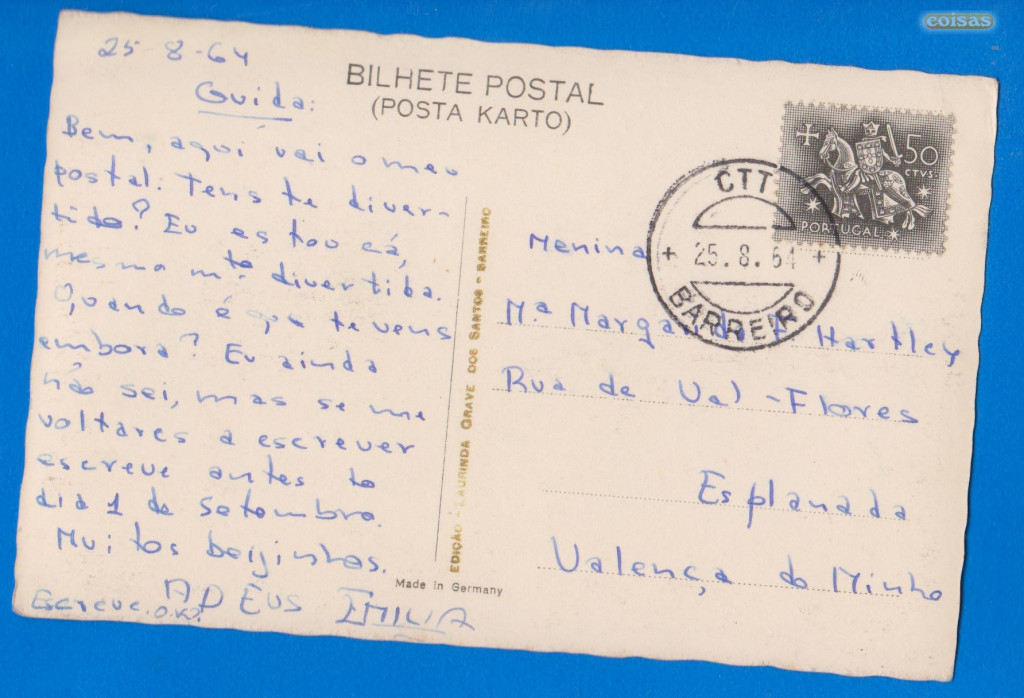 coisas
25-8-64
Guida:
Bem, aqui vai o meu
postal. Tens te diver-
tido? Eu estou cá,
mesmo mto divertida.
Quando é que te vens
embora? Eu ainda
não sei, mas se me
voltares a escrever
escreve antes do
dia 1 de Setembro.
Muitos beijinhos.
ADEUS EMILIA
Escreve. O.K.
BILHETE POSTAL
(POSTA KARTO)
EDIÇÃO - LAURINDA GRAVE DOS SANTOS - BARREIRO
Made in Germany
50
CTVS.
PORTUGAL
CTT
25.8.64
BARREIRO
Menina
Mª Margarida Hartley
Rua de Val-Flores
Esplanada
Valença do Minho